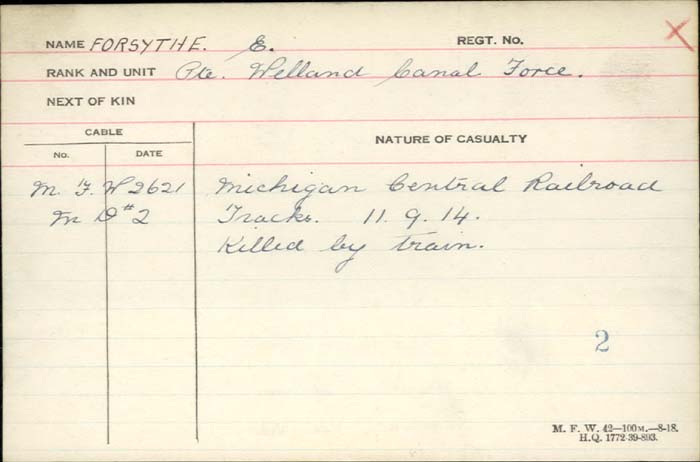 NAME FORSYTHE. E. REGT. No.
RANK AND UNIT Pte. Welland Canal Force.
NEXT OF KIN
CABLE
NATURE OF CASUALTY
No. DATE
M. F. W 2621 Michigan Central Railroad
M D #2 Tracks. 11.9.14.
Killed by train.
2
M. F. W. 42—100M.—8-18.
H.Q. 1772-39-893.